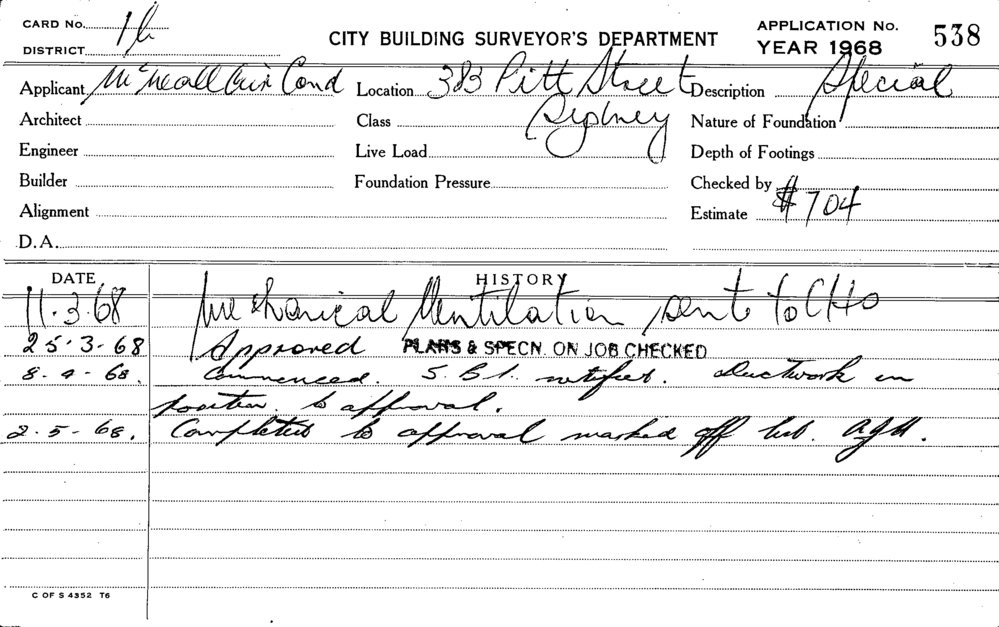 CARD No. 1b
DISTRICT
CITY BUILDING SURVEYOR'S DEPARTMENT
APPLICATION No. 538
YEAR 1968
Applicant McNeall Air Cond Location 383 Pitt Street Description Special
Architect Class Sydney Nature of Foundation
Engineer Live Load Depth of Footings
Builder Foundation Pressure Checked by
Alignment Estimate $704
D.A.
DATE HISTORY
11.3.68 Mechanical Ventilation sent to CHO
25.3-68 Approved PLANS & SPECN. ON JOB CHECKED
8.4-68. Commenced. S.B.I. notified. Ductwork in
position to approval.
2.5-68. Completed to approval marked off
C OF S 4352 T6